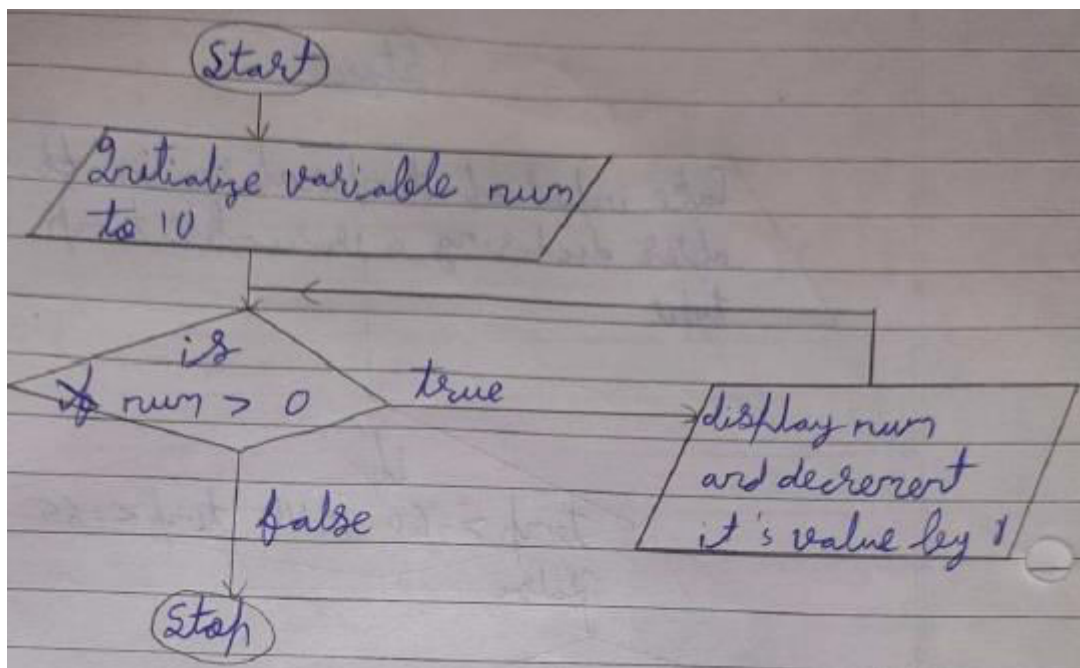 Start
Initialize variable num
to 10
is
num > 0
true
display num
and decrement
it's value by 1
false
Stop